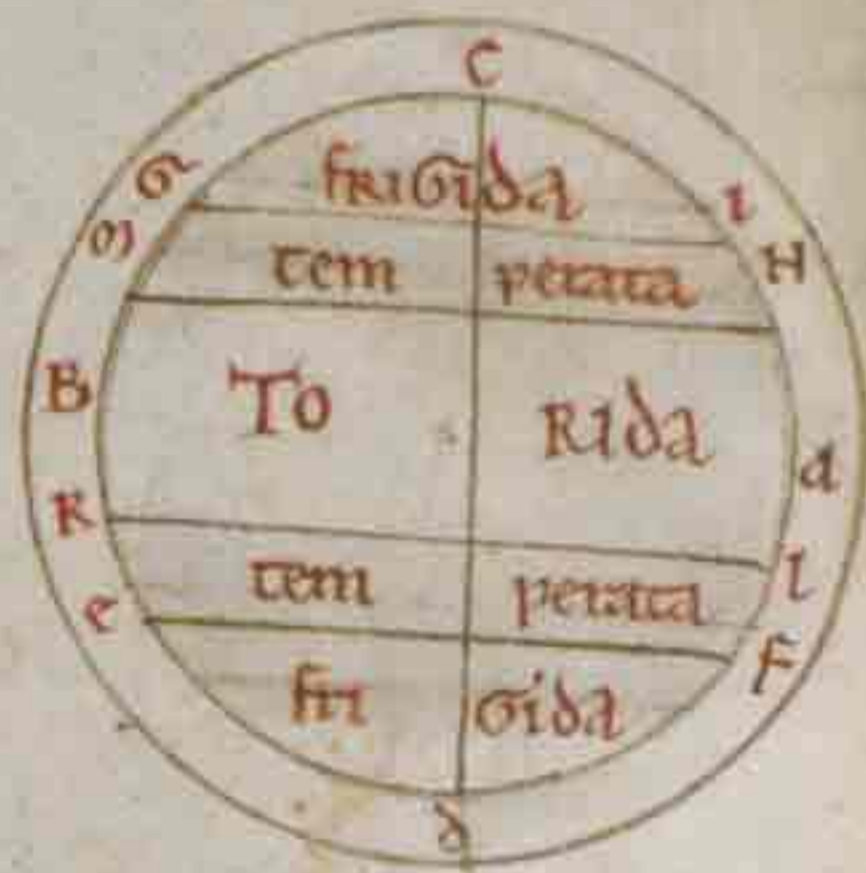 C
G
I
M
H
fRIGIda
tem perata
B
To Rida
a
R
l
tem perata
e
F
fri Gida
d